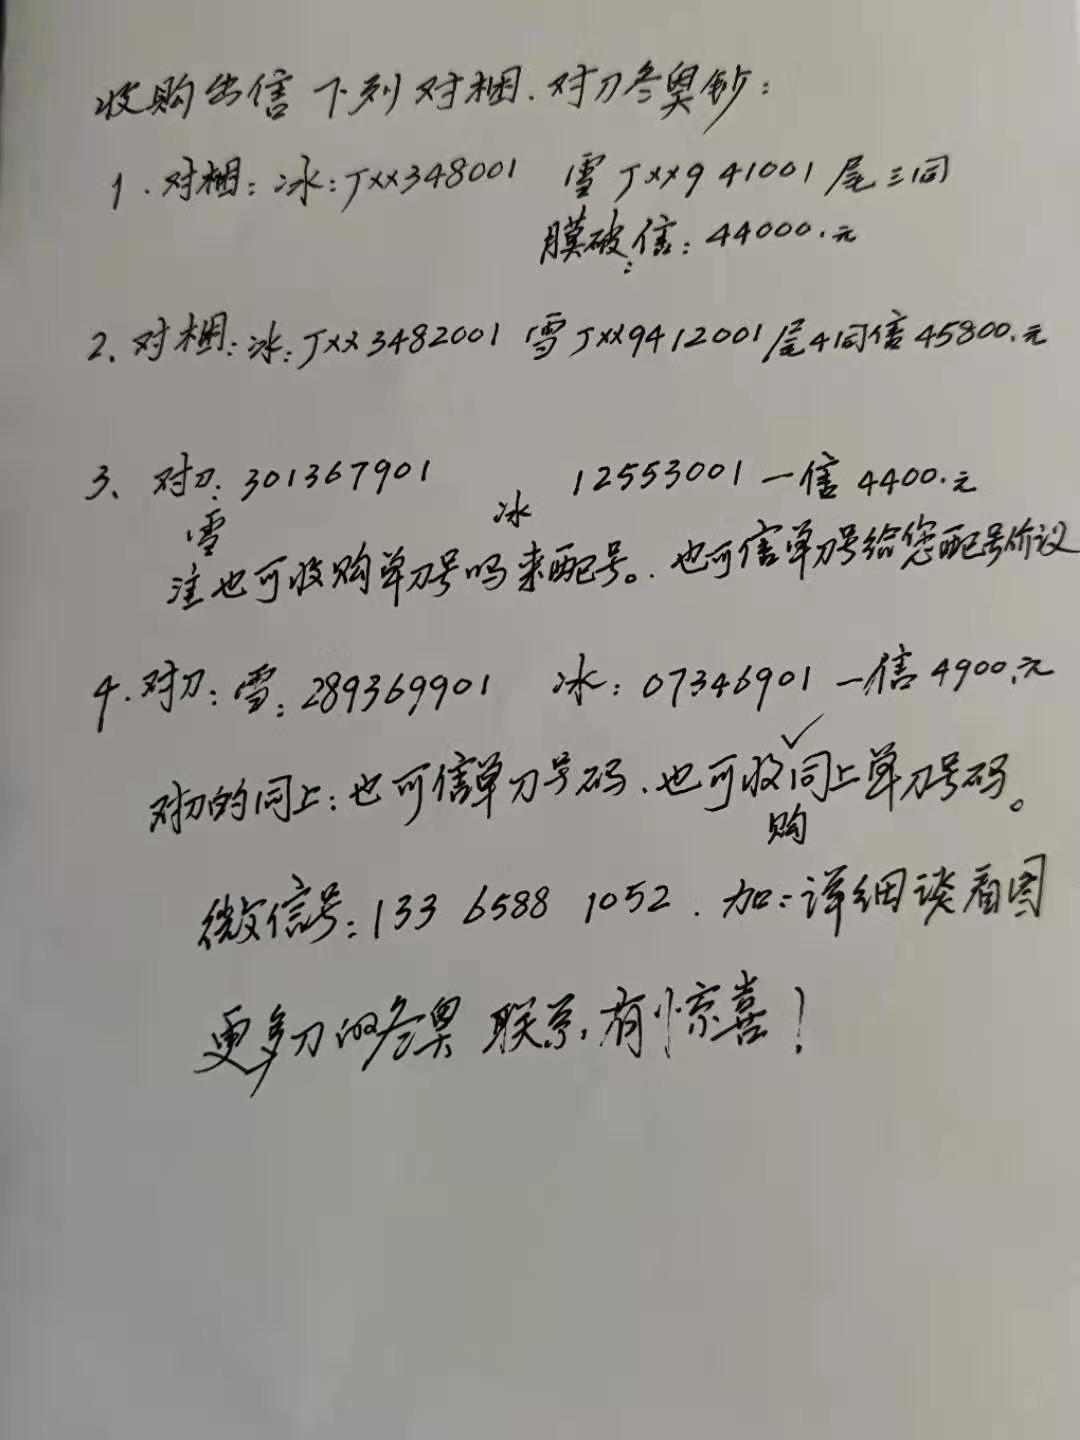 收购出信下列对捆.对刀冬奥钞:
1.对捆:冰:JXX348001 雪JXX941001尾三同
膜破:信:44000.元
2、对捆:冰:JXX3482001 雪JXX9412001尾4同信45800.元
3、对刀:301367901 12553001一信4400.元
雪 冰
注也可收购单刀号吗来配号。.也可信单刀号给您配号价议
4.对刀:雪:289369901 冰:07346901一信4900.元
对刀的同上:也可信单刀号码、也可收同上单刀号码。
购
微信号:133 6588 1052.加:详细谈看图
更多刀的冬奥联系,有惊喜!